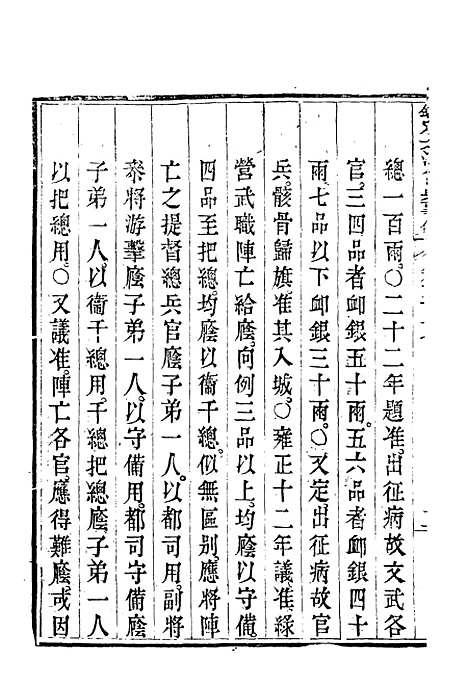 總一百兩。○二十二年題准。出征病故文武各
官。三四品者卹銀五十兩。五六品者卹銀四十
兩。七品以下卹銀三十兩。○又定。出征病故官
兵。骸骨歸旗。准其入城。○雍正十二年議准。綠
營武職陣亡給廕。向例三品以上。均廕以守備。
四品至把總。均廕以衞千總。似無區別。應將陣
亡之提督總兵官廕子弟一人。以都司用。副將
參將游擊廕子弟一人。以守備用。都司守備廕
子弟一人。以衞千總用。千總把總廕子弟一人
以把總用。○又議准。陣亡各官。應得難廕。或因